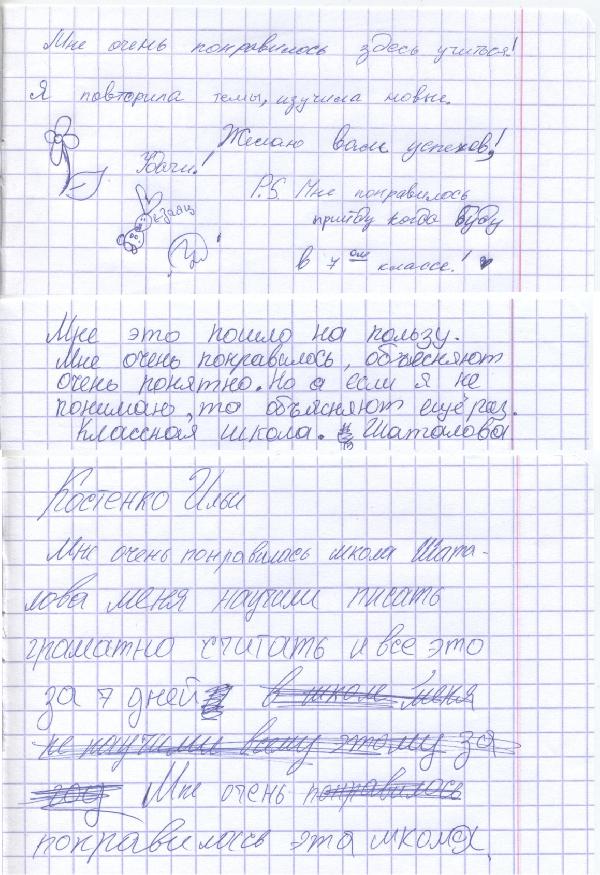 Мне очень понравилось здесь учиться!
Я повторила темы, изучила новые.
Желаю вам успехов!
Удачи!
P.S. Мне понравилось
заяц
прийду когда буду
в 7 ом классе!
Мне это пошло на пользу.
Мне очень понравилось, объесняют
очень понятно. Но а если я не
понимаю, то объясняют ещё раз.
Классная школа. Шаталова
Костенко Ильи
Мне очень понравилась школа Шата-
лова меня научили писать
граматно считать и все это
за 7 дней в школе меня
не научили всему этому за
год Мне очень понравилось
понравилась эта школа.